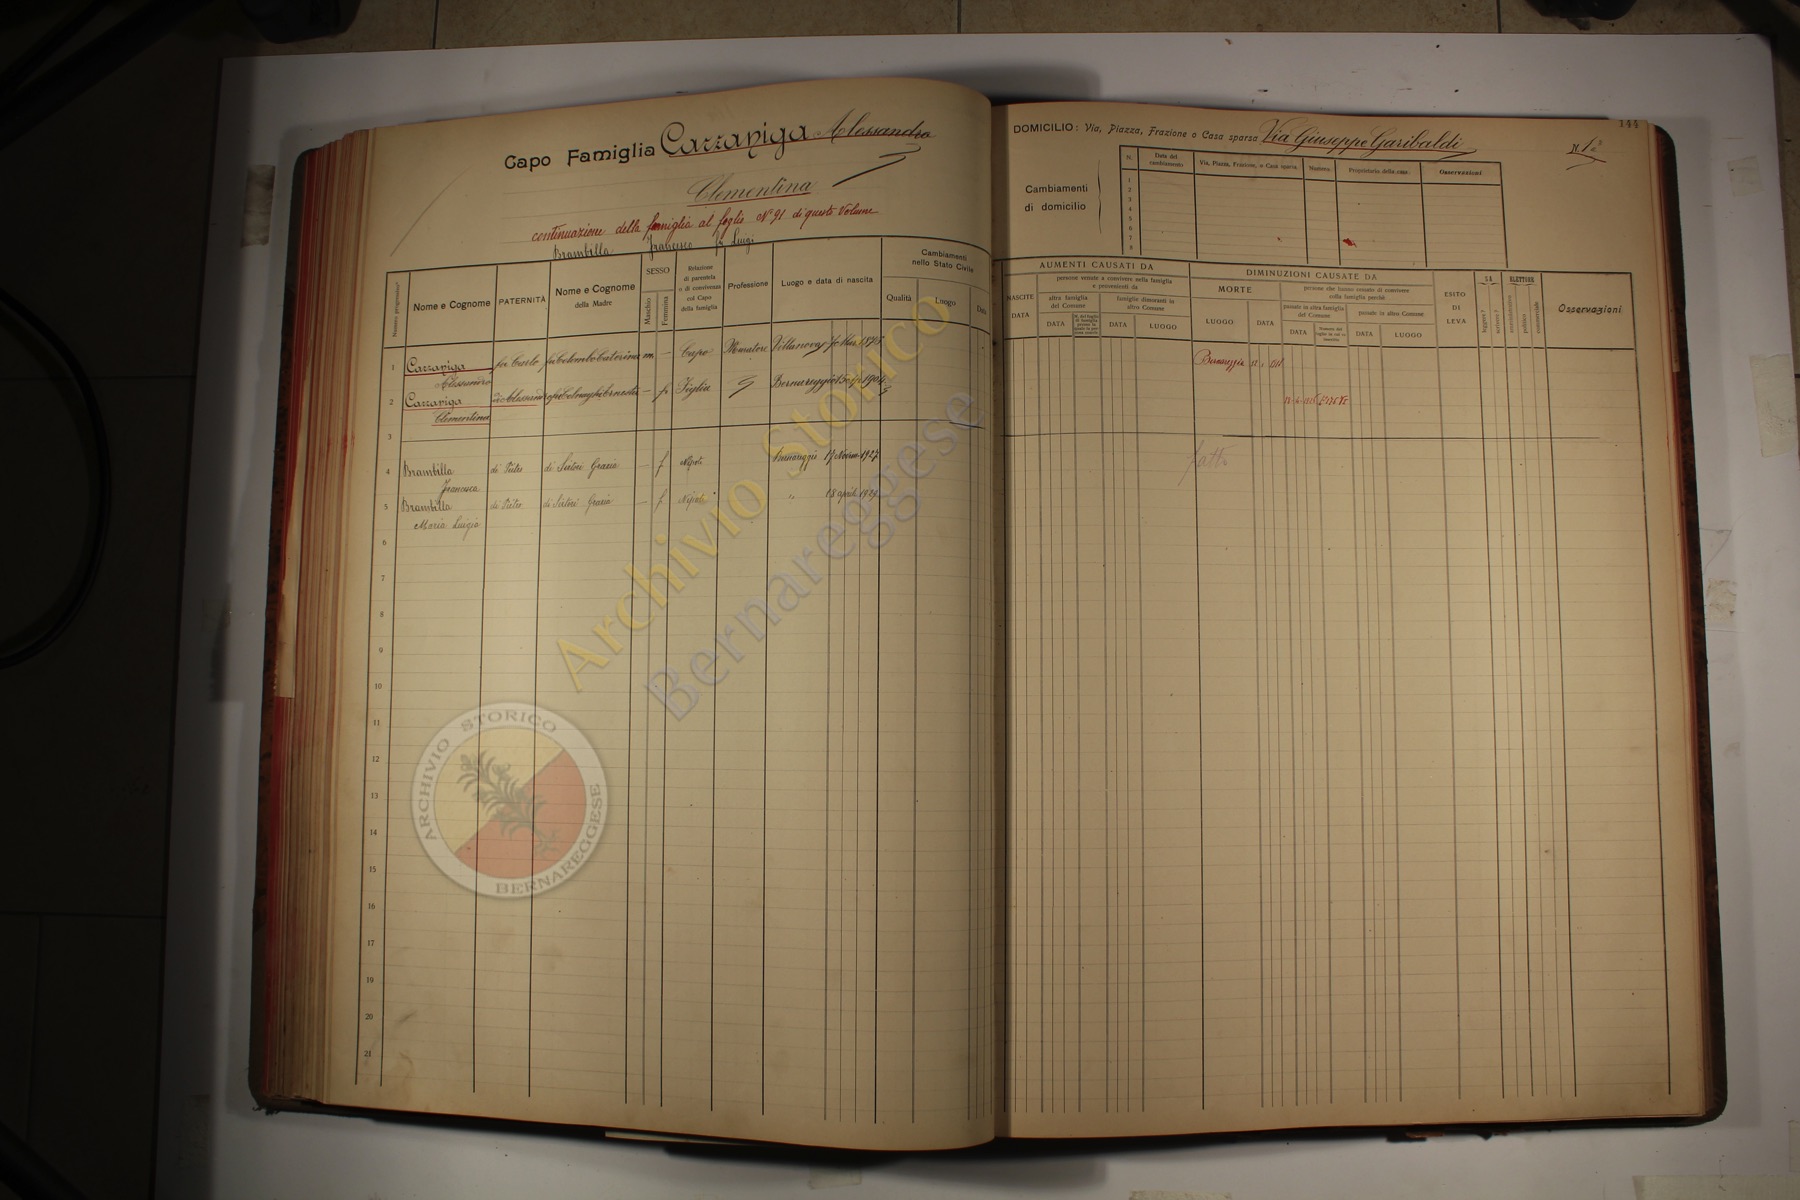 Capo Famiglia Cazzaniga Alessandro
Clementina
continuazione della famiglia al foglio N° 91 di questo Volume
Brambilla Francesco fu Luigi
Numero progressivo
Nome e Cognome
PATERNITÀ
Nome e Cognome
della Madre
SESSO
Maschio
Femmina
Relazione
di parentela
o di convivenza
col Capo
della famiglia
Professione
Luogo e data di nascita
Cambiamenti
nello Stato Civile
Qualità
Luogo
Data
1 Cazzaniga fu Carlo fu Colombo Caterina m. – Capo Muratore Villanova
Alessandro
2 Cazzaniga di Alessandro – f. Figlia Bernareggio
Clementina
3
4 Brambilla di Pietro di Sirtori Grazia – f Nipote Bernareggio 17 Novem 1927
Francesca
5 Brambilla di Pietro di Sirtori Grazia – f Nipote " 18 aprile 1929
Maria Luigia
6
7
8
9
10
11
12
13
14
15
16
17
18
19
20
21
144
DOMICILIO: Via, Piazza, Frazione o Casa sparsa Via Giuseppe Garibaldi N. 12
Cambiamenti
di domicilio
N.
Data del
cambiamento
Via, Piazza, Frazione, o Casa sparsa
Numero
Proprietario della casa
Osservazioni
1
2
3
4
5
6
7
8
AUMENTI CAUSATI DA
NASCITE
DATA
persone venute a convivere nella famiglia
e provenienti da
altra famiglia
del Comune
DATA
famiglie dimoranti in
altro Comune
DATA
LUOGO
DIMINUZIONI CAUSATE DA
MORTE
LUOGO
DATA
persone che hanno cessato di convivere
colla famiglia perchè
passate in altra famiglia
del Comune
DATA
passate in altro Comune
DATA
LUOGO
ESITO
DI
LEVA
SA
leggere?
scrivere?
ELETTORE
amministrativo
politico
commerciale
Osservazioni
Bernareggio
fatto
Archivio Storico
Bernareggese
ARCHIVIO STORICO
BERNAREGGESE